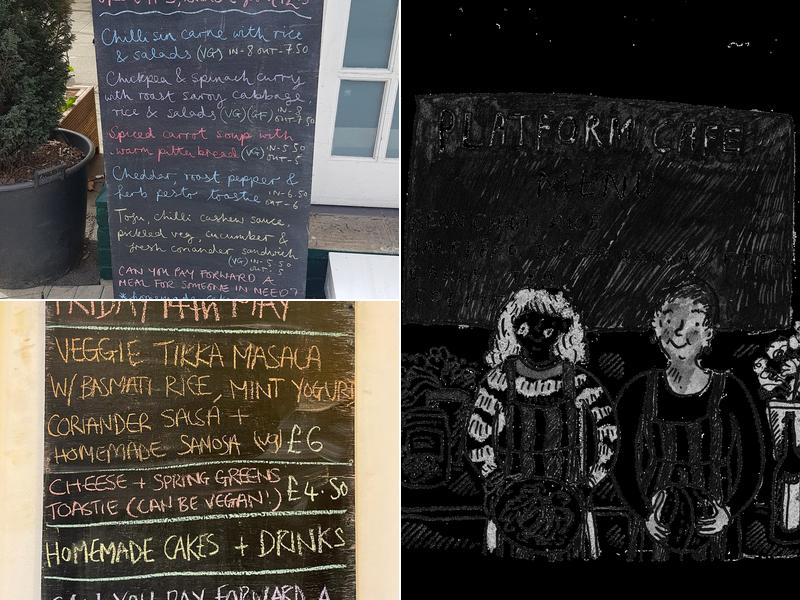 Chilli sin carne with rice
& salads (VG) IN-8 OUT-7.50
Chickpea & spinach curry
with roast savoy cabbage,
rice & salads (VG)(GF) IN-8
OUT-7.50
Spiced carrot soup with
warm pitta bread (VG) IN-5.50
OUT-5
Cheddar, roast pepper &
herb pesto toastie IN-6.50
OUT-6
Tofu, chilli cashew sauce,
pickled veg, cucumber &
fresh coriander sandwich
(VG) IN-5.50
OUT-5
CAN YOU PAY FORWARD A
MEAL FOR SOMEONE IN NEED?
FRIDAY 14TH MAY
VEGGIE TIKKA MASALA
W/BASMATI RICE, MINT YOGURT
CORIANDER SALSA +
HOMEMADE SAMOSA (VG) £6
CHEESE + SPRING GREENS
TOASTIE (CAN BE VEGAN!) £4.50
HOMEMADE CAKES + DRINKS
CAN YOU PAY FORWARD A
PLATFORM CAFE
MENU